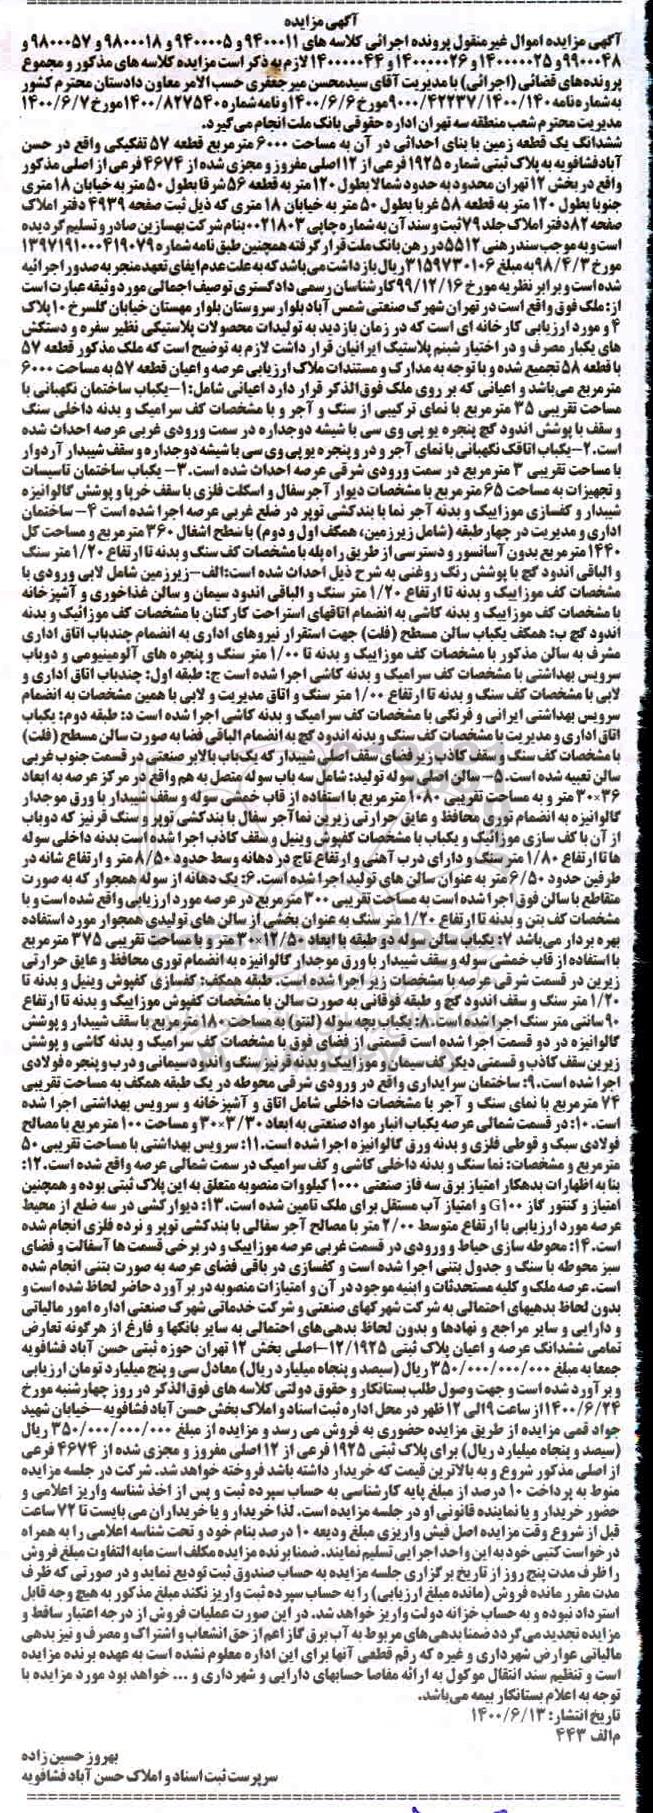 آگهی مزایده
آگهی مزایده اموال غیر منقول پرونده اجرائی کلاسه های ۹۴۰۰۰۱۱ و ۹۴۰۰۰۰۵ و ۹۸۰۰۰۱۸ و ۹۸۰۰۰۵۷ و
۹۹۰۰۰۴۸ و ۱۴۰۰۰۰۰۲۵ و ۱۴۰۰۰۰۰۲۶ و ۱۴۰۰۰۰۰۴۴ لازم به ذکر است مزایده کلاسه های مذکور و مجموع
پرونده‌های قضائی (اجرائی) با مدیریت آقای سیدمحسن میرجعفری حسب الامر معاون دادستان محترم کشور
به شماره نامه ۹۰۰۰/۴۲۲۳۷/۱۴۰۰/۱۴۰ مورخ ۱۴۰۰/۶/۶ و نامه شماره ۱۴۰۰/۸۲۷۵۴۰ مورخ ۱۴۰۰/۶/۷
مدیریت محترم شعب منطقه سه تهران اداره حقوقی بانک ملت انجام می‌گیرد.
ششدانگ یک قطعه زمین با بنای احداثی در آن به مساحت ۶۰۰۰ مترمربع قطعه ۵۷ تفکیکی واقع در حسن
آبادفشافویه به پلاک ثبتی شماره ۱۹۲۵ فرعی از ۱۲ اصلی مفروز و مجزی شده از ۴۶۷۴ فرعی از اصلی مذکور
واقع در بخش ۱۲ تهران محدود به حدود شمالا بطول ۱۲۰ متر به قطعه ۵۶ شرقا بطول ۵۰ متر به خیابان ۱۸ متری
جنوبا بطول ۱۲۰ متر به قطعه ۵۸ غربا بطول ۵۰ متر به خیابان ۱۸ متری که ذیل ثبت صفحه ۴۹۳۹ دفتر املاک
صفحه ۸۲ دفتر املاک جلد ۷۹ ثبت و سند آن به شماره چاپی ۰۰۲۱۸۰۳ بنام شرکت بهسازین صادر و تسلیم گردیده
است و به موجب سند رهنی ۵۵۱۲ در رهن بانک ملت قرار گرفته همچنین طبق نامه شماره ۱۳۹۷۱۹۱۰۰۰۴۱۹۰۷۹
مورخ ۹۸/۴/۳ به مبلغ ۳۱۵۹۷۳۰۱۰۶ ریال بازداشت می‌باشد که به علت عدم ایفای تعهد منجر به صدور اجرائیه
شده است و برابر نظریه مورخ ۹۹/۱۲/۱۶ کارشناسان رسمی دادگستری توصیف اجمالی مورد وثیقه عبارت است
از: ملک فوق واقع است در تهران شهرک صنعتی شمس آباد بلوار سروستان بلوار مهستان خیابان گلسرخ ۱۰ پلاک
۴ و مورد ارزیابی کارخانه ای است که در زمان بازدید به تولیدات محصولات پلاستیکی نظیر سفره و دستکش
های یکبار مصرف و در اختیار شبنم پلاستیک ایرانیان قرار داشت لازم به توضیح است که ملک مذکور قطعه ۵۷
با قطعه ۵۸ تجمیع شده و با توجه به مدارک و مستندات ملاک ارزیابی عرصه و اعیان قطعه ۵۷ به مساحت ۶۰۰۰
مترمربع می‌باشد و اعیانی که بر روی ملک فوق‌الذکر قرار دارد اعیانی شامل: ۱-یکباب ساختمان نگهبانی با
مساحت تقریبی ۳۵ مترمربع با نمای ترکیبی از سنگ و آجر و با مشخصات کف سرامیک و بدنه داخلی سنگ
و سقف با پوشش اندود گچ پنجره یو پی وی سی با شیشه دوجداره در سمت ورودی غربی عرصه احداث شده
است.۲-یکباب اتاقک نگهبانی با نمای آجر و در و پنجره یو پی وی سی با شیشه دوجداره و سقف شیبدار آردواز
با مساحت تقریبی ۳ مترمربع در سمت ورودی شرقی عرصه احداث شده است.۳- یکباب ساختمان تاسیسات
و تجهیزات به مساحت ۶۵ مترمربع با مشخصات دیوار آجرسفال و اسکلت فلزی با سقف خرپا و پوشش گالوانیزه
شیبدار و کفسازی موزاییک و بدنه آجر نما با بندکشی توپر در ضلع غربی عرصه اجرا شده است ۴- ساختمان
اداری و مدیریت در چهار طبقه (شامل زیرزمین، همکف اول و دوم) با سطح اشغال ۳۶۰ مترمربع و مساحت کل
۱۴۴۰ مترمربع بدون آسانسور و دسترسی از طریق راه پله با مشخصات کف سنگ و بدنه تا ارتفاع ۱/۲۰ متر سنگ
و الباقی اندود گچ با پوشش رنگ روغنی به شرح ذیل احداث شده است: الف-زیرزمین شامل لابی ورودی با
مشخصات کف موزاییک و بدنه تا ارتفاع ۱/۲۰ متر سنگ و الباقی اندود سیمان و سالن غذاخوری و آشپزخانه
با مشخصات کف موزاییک و بدنه کاشی به انضمام اتاقهای استراحت کارکنان با مشخصات کف موزائیک و بدنه
اندود گچ ب: همکف یکباب سالن مسطح (فلت) جهت استقرار نیروهای اداری به انضمام چندباب اتاق اداری
مشرف به سالن مذکور با مشخصات کف موزاییک و بدنه تا ۱/۰۰ متر سنگ و پنجره های آلومینیومی و دوباب
سرویس بهداشتی با مشخصات کف سرامیک و بدنه کاشی اجرا شده است ج: طبقه اول: چندباب اتاق اداری و
لابی با مشخصات کف سنگ و بدنه تا ارتفاع ۱/۰۰ متر سنگ و اتاق مدیریت و لابی با همین مشخصات به انضمام
سرویس بهداشتی ایرانی و فرنگی با مشخصات کف سرامیک و بدنه کاشی اجرا شده است د: طبقه دوم: یکباب
اتاق اداری و مدیریت با مشخصات کف سنگ و بدنه اندود گچ به انضمام الباقی فضا به صورت سالن مسطح (فلت)
با مشخصات کف سنگ و سقف کاذب زیر فضای سقف اصلی شیبدار که یک‌باب بالابر صنعتی در قسمت جنوب غربی
سالن تعبیه شده است.۵- سالن اصلی سوله تولید: شامل سه باب سوله متصل به هم واقع در مرکز عرصه به ابعاد
۳۶×۳۰ متر و به مساحت تقریبی ۱۰۸۰ مترمربع با استفاده از قاب خمشی سوله و سقف شیبدار با ورق موجدار
گالوانیزه به انضمام توری محافظ و عایق حرارتی زیرین نما آجر سفال با بندکشی توپر و سنگ قرنیز که دوباب
از آن با کف سازی موزائیک و یکباب با مشخصات کفپوش وینیل و سقف کاذب اجرا شده است بدنه داخلی سوله
ها تا ارتفاع ۱/۸۰ متر سنگ و دارای درب آهنی و ارتفاع تاج در دهانه وسط حدود ۸/۵۰ متر و ارتفاع شانه در
طرفین حدود ۶/۵۰ متر به عنوان سالن های تولید اجرا شده است.۶: یک دهانه از سوله همجوار که به صورت
متقاطع با سالن فوق اجرا شده است به مساحت تقریبی ۳۰۰ مترمربع در عرصه مورد ارزیابی واقع شده است و با
مشخصات کف بتن و بدنه تا ارتفاع ۱/۲۰ متر سنگ به عنوان بخشی از سالن های تولیدی همجوار مورد استفاده
بهره بردار می‌باشد ۷: یکباب سالن سوله دو طبقه با ابعاد ۱۲/۵۰×۳۰ متر و با مساحت تقریبی ۳۷۵ مترمربع
با استفاده از قاب خمشی سوله و سقف شیبدار با ورق موجدار گالوانیزه به انضمام توری محافظ و عایق حرارتی
زیرین در قسمت شرقی عرصه با مشخصات زیر اجرا شده است. طبقه همکف: کفسازی کفپوش وینیل و بدنه تا
۱/۲۰ متر سنگ و سقف اندود گچ و طبقه فوقانی به صورت سالن با مشخصات کفپوش موزاییک و بدنه تا ارتفاع
۹۰ سانتی متر سنگ اجرا شده است.۸: یکباب بچه سوله (لنتو) به مساحت ۱۸۰ مترمربع با سقف شیبدار و پوشش
گالوانیزه در دو قسمت اجرا شده است قسمتی از فضای فوق با مشخصات کف سرامیک و بدنه کاشی و پوشش
زیرین سقف کاذب و قسمتی دیگر کف سیمان و موزاییک و بدنه قرنیز سنگ و اندود سیمانی و درب و پنجره فولادی
اجرا شده است.۹: ساختمان سرایداری واقع در ورودی شرقی محوطه در یک طبقه همکف به مساحت تقریبی
۷۴ مترمربع با نمای سنگ و آجر با مشخصات داخلی شامل اتاق و آشپزخانه و سرویس بهداشتی اجرا شده
است.۱۰: در قسمت شمالی عرصه یکباب انبار مواد صنعتی به ابعاد ۳/۳۰×۳۰ و مساحت ۱۰۰ مترمربع با مصالح
فولادی سبک و قوطی فلزی و بدنه ورق گالوانیزه اجرا شده است.۱۱: سرویس بهداشتی با مساحت تقریبی ۵۰
مترمربع و مشخصات: نما سنگ و بدنه داخلی کاشی و کف سرامیک در سمت شمالی عرصه واقع شده است.۱۲:
بنا به اظهارات بدهکار امتیاز برق سه فاز صنعتی ۱۰۰۰ کیلووات منصوبه متعلق به این پلاک ثبتی بوده و همچنین
امتیاز و کنتور گاز G۱۰۰ و امتیاز آب مستقل برای ملک تامین شده است.۱۳: دیوارکشی در سه ضلع از محیط
عرصه مورد ارزیابی با ارتفاع متوسط ۲/۰۰ متر با مصالح آجر سفالی با بندکشی توپر و نرده فلزی انجام شده
است.۱۴: محوطه سازی حیاط و ورودی در قسمت غربی عرصه موزاییک و در برخی قسمت ها آسفالت و فضای
سبز محوطه با سنگ و جدول بتنی اجرا شده است و کفسازی در باقی فضای عرصه به صورت بتنی انجام شده
است. عرصه ملک و کلیه مستحدثات و ابنیه موجود در آن و امتیازات منصوبه در برآورد حاضر لحاظ شده است و
بدون لحاظ بدهیهای احتمالی به شرکت شهرکهای صنعتی و شرکت خدماتی شهرک صنعتی اداره امور مالیاتی
و دارایی و سایر مراجع و نهادها و بدون لحاظ بدهی‌های احتمالی به سایر بانکها و فارغ از هرگونه تعارض
تمامی ششدانگ عرصه و اعیان پلاک ثبتی ۱۲/۱۹۲۵-اصلی بخش ۱۲ تهران حوزه ثبتی حسن آباد فشافویه
جمعا به مبلغ ۳۵۰/۰۰۰/۰۰۰/۰۰۰ ریال (سیصد و پنجاه میلیارد ریال) معادل سی و پنج میلیارد تومان ارزیابی
و برآورد شده است و جهت وصول طلب بستانکار و حقوق دولتی کلاسه های فوق‌الذکر در روز چهارشنبه مورخ
۱۴۰۰/۶/۲۴ از ساعت ۹ الی ۱۲ ظهر در محل اداره ثبت اسناد و املاک بخش حسن آباد فشافویه-خیابان شهید
جواد قمی مزایده از طریق مزایده حضوری به فروش می رسد و مزایده از مبلغ ۳۵۰/۰۰۰/۰۰۰/۰۰۰ ریال
(سیصد و پنجاه میلیارد ریال) برای پلاک ثبتی ۱۹۲۵ فرعی از ۱۲ اصلی مفروز و مجزی شده از ۴۶۷۴ فرعی
از اصلی مذکور شروع و به بالاترین قیمت که خریدار داشته باشد فروخته خواهد شد. شرکت در جلسه مزایده
منوط به پرداخت ۱۰ درصد از مبلغ پایه کارشناسی به حساب سپرده ثبت و پس از اخذ شناسه واریز اعلامی و
حضور خریدار و یا نماینده قانونی او در جلسه مزایده است. لذا خریدار و یا خریداران می بایست تا ۷۲ ساعت
قبل از شروع وقت مزایده اصل فیش واریزی مبلغ ودیعه ۱۰ درصد بنام خود و تحت شناسه اعلامی را به همراه
درخواست کتبی خود به این واحد اجرایی تسلیم نمایند. ضمنا برنده مزایده مکلف است مابه التفاوت مبلغ فروش
را ظرف مدت پنج روز از تاریخ برگزاری جلسه مزایده به حساب صندوق ثبت تودیع نماید و در صورتی که ظرف
مدت مقرر مانده فروش (مانده مبلغ ارزیابی) را به حساب سپرده ثبت واریز نکند مبلغ مذکور به هیچ وجه قابل
استرداد نبوده و به حساب خزانه دولت واریز خواهد شد. در این صورت عملیات فروش از درجه اعتبار ساقط و
مزایده تجدید می گردد ضمنا بدهی‌های مربوط به آب برق گاز اعم از حق انشعاب و اشتراک و مصرف و نیز بدهی
مالیاتی عوارض شهرداری و غیره که رقم قطعی آنها برای این اداره معلوم نشده است به عهده برنده مزایده
است و تنظیم سند انتقال موکول به ارائه مفاصا حسابهای دارایی و شهرداری و ... خواهد بود مورد مزایده با
توجه به اعلام بستانکار بیمه می‌باشد.
تاریخ انتشار: ۱۴۰۰/۶/۱۳
م الف ۴۴۳
بهروز حسین زاده
سرپرست ثبت اسناد و املاک حسن آباد فشافویه